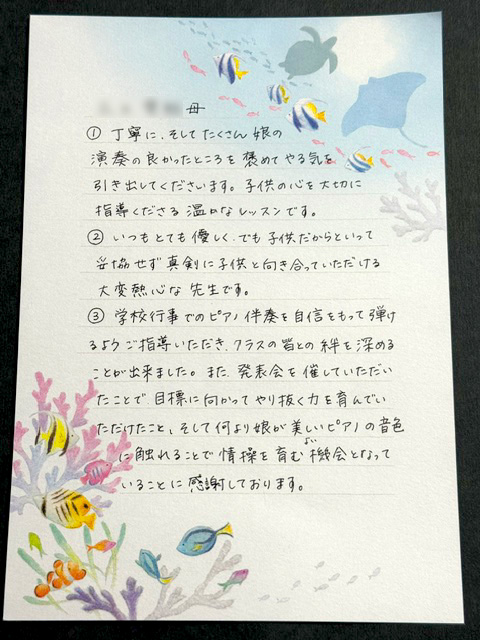 母
① 丁寧に、そしてたくさん娘の
演奏の良かったところを褒めてやる気を
引き出してくださいます。子供の心を大切に
指導くださる温かなレッスンです。
② いつもとても優しく、でも子供だからといって
妥協せず真剣に子供と向き合っていただける
大変熱心な先生です。
③ 学校行事でのピアノ伴奏を自信をもって弾け
るようご指導いただき、クラスの皆との絆を深める
ことが出来ました。また、発表会を催していただい
たことで目標に向かってやり抜く力を育んでい
ただけたこと、そして何より娘が美しいピアノの音色
に触れることで情操を育むよい機会となって
いることに感謝しております。